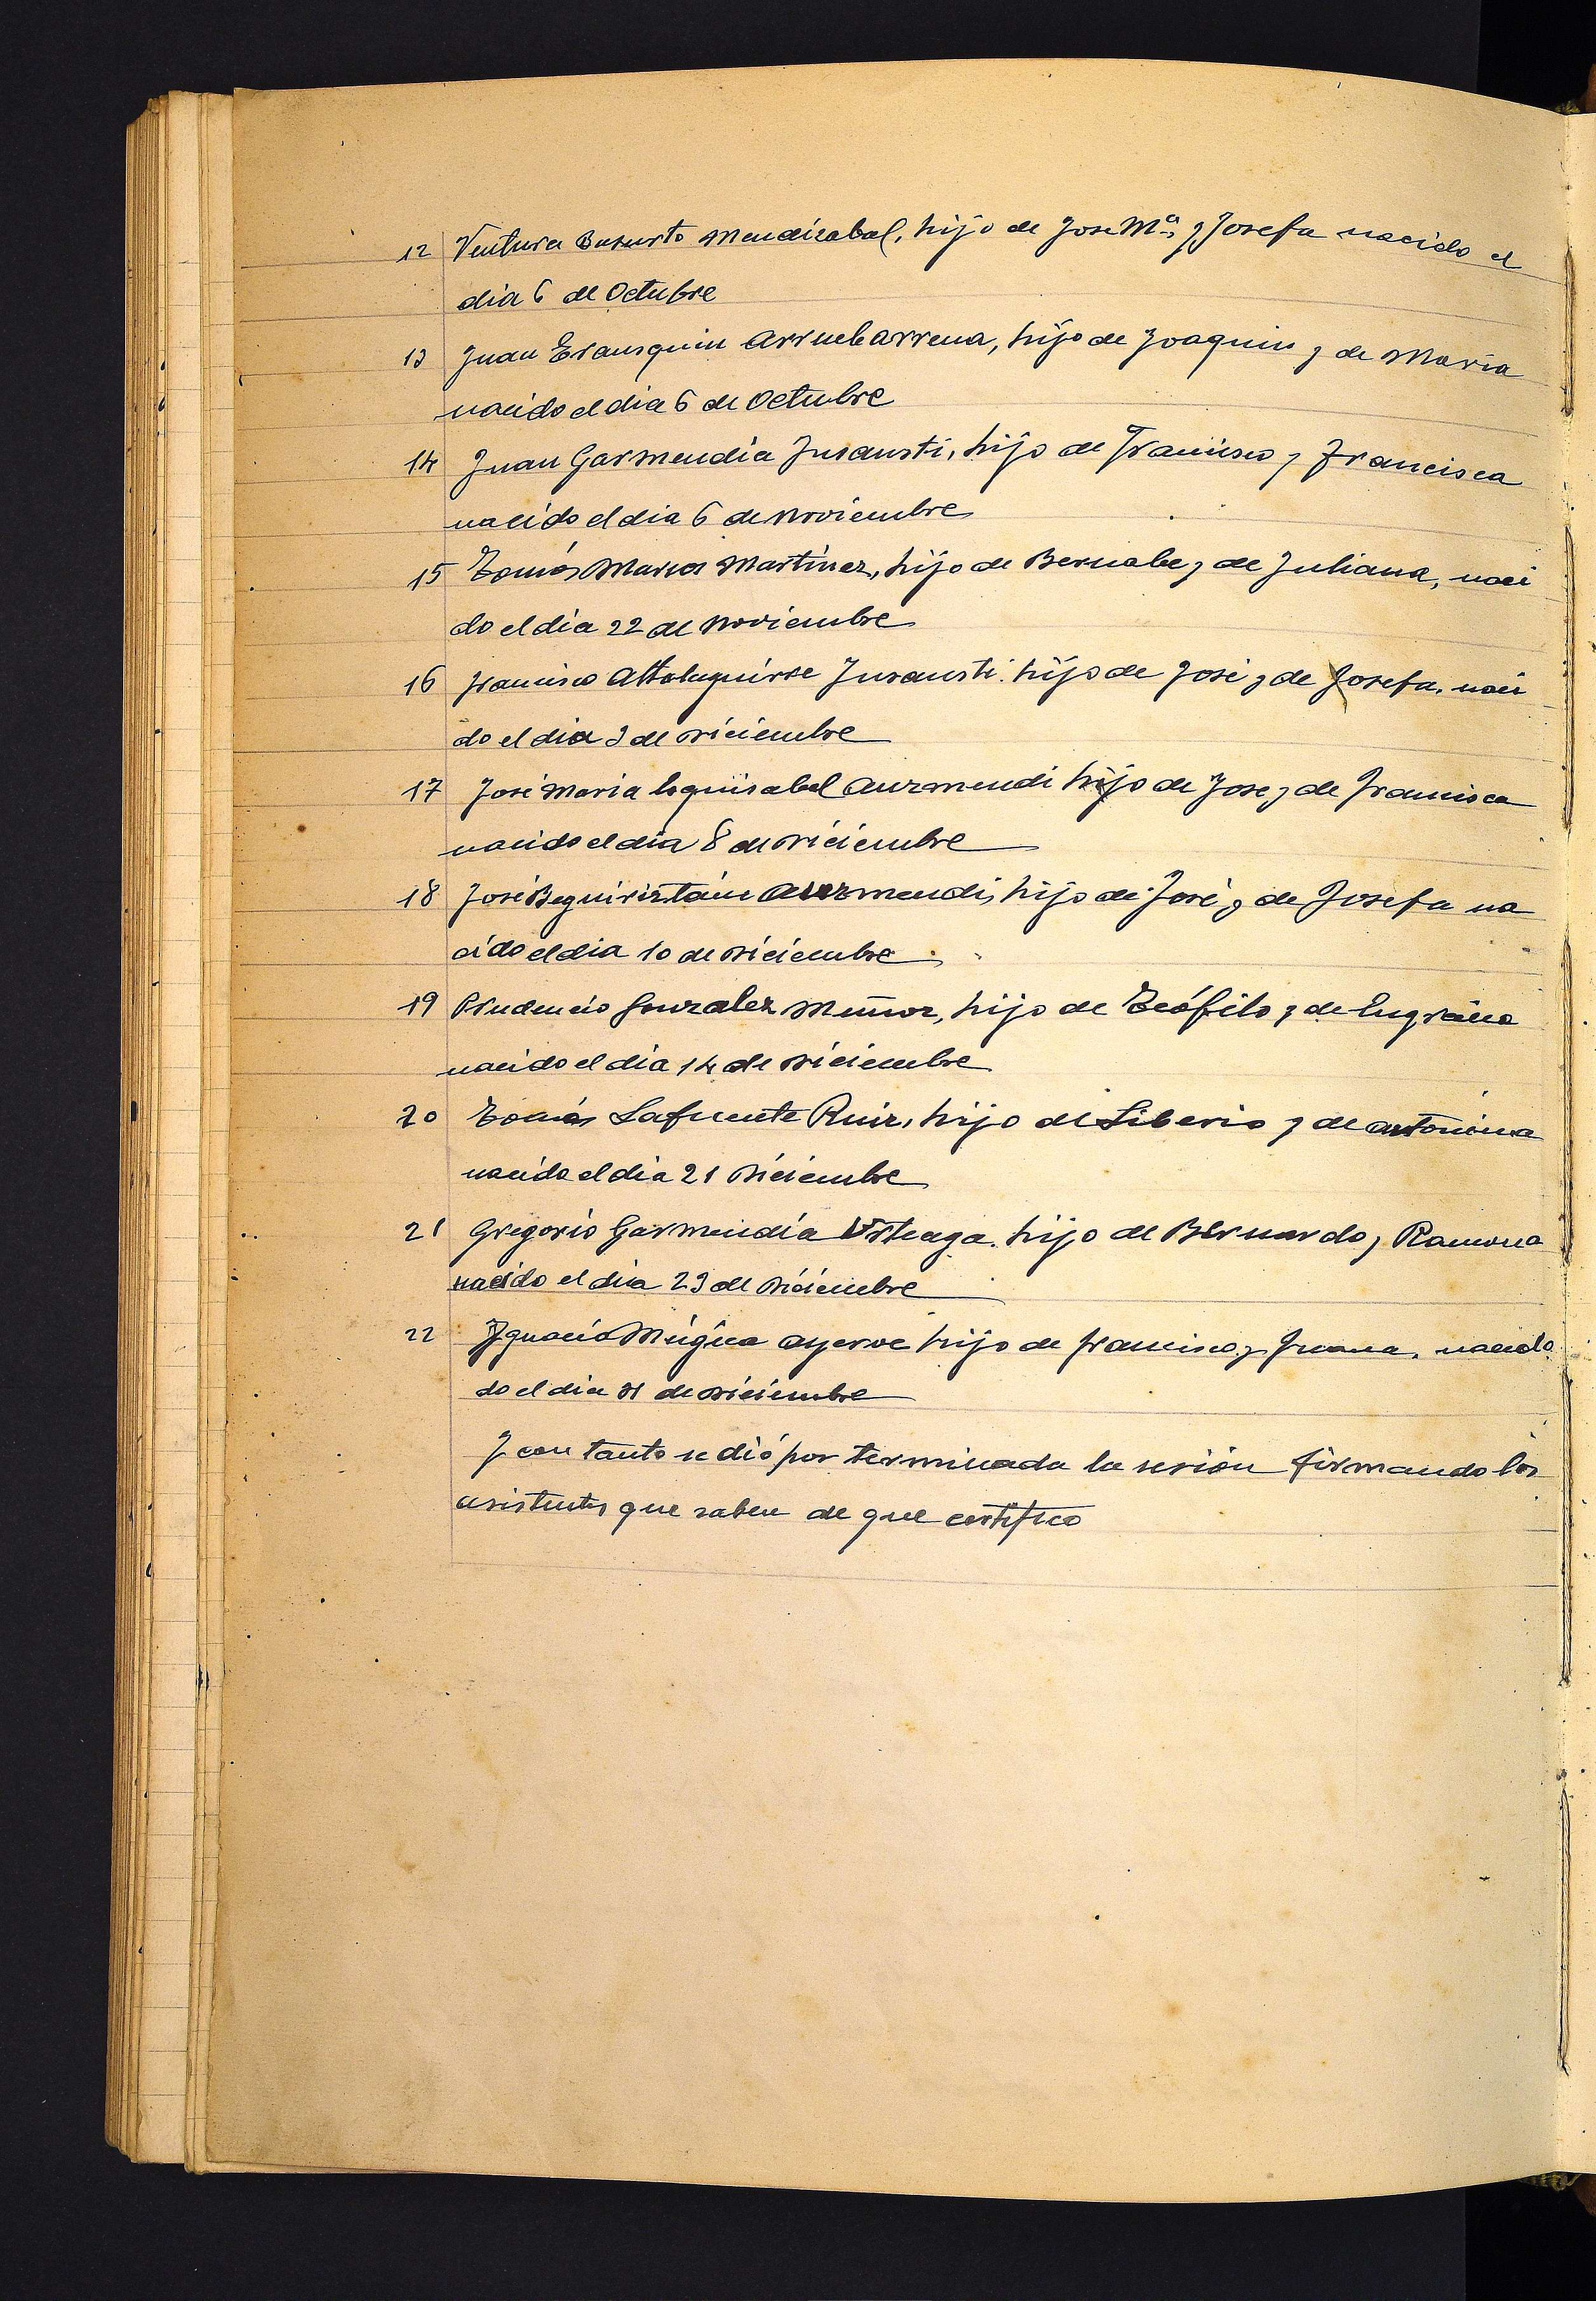 12 Ventura Basurto Mendizabal, hijo de Jose Mª y Josefa nacido el
dia 6 de Octubre
13 Juan Erausquin Arruebarrena, hijo de Joaquin y de Maria
nacido el dia 6 de Octubre
14 Juan Garmendia Insausti, hijo de Francisco y Francisca
nacido el dia 6 de Noviembre
15 Tomás Marcos Martinez, hijo de Bernabe y de Juliana, naci
do el dia 22 de Noviembre
16 Francisco Altolaguirre Insausti. hijo de José y de Josefa, naci
do el dia 3 de Diciembre
17 José Maria Eguisabel Aurmendi hijo de Jose y de Francisca
nacido el dia 8 de Diciembre
18 José Beguiristáin Aurmendi, hijo de José y de Josefa na
cido el dia 10 de Diciembre
19 Prudencio Gonzalez Muñoz, hijo de Teófilo y de Engracia
nacido el dia 14 de Diciembre
20 Tomás Lafuente Ruiz, hijo de Liberio y de Antonina
nacido el dia 21 Diciembre
21 Gregorio Garmendia Urteaga. hijo de Bernardo y Ramona
nacido el dia 23 de Diciembre
22 Ygnacio Múgica Ayerve hijo de Francisco y Juana, nacido
do el dia 31 de Diciembre
Y con tanto se dió por terminada la sesión firmando los
asistentes que saben de que certifico